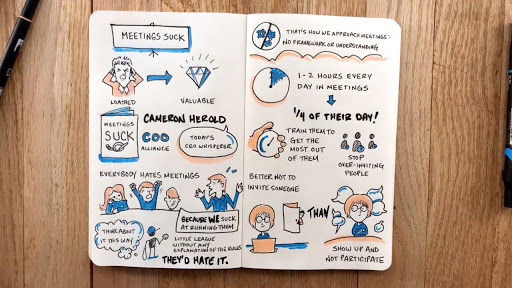 MEETINGS SUCK
LOATHED
VALUABLE
MEETINGS
SUCK
CAMERON HEROLD
COO
ALLIANCE
TODAY'S
CRO WHISPERER
EVERYBODY HATES MEETINGS
BECAUSE WE SUCK
AT RUNNING THEM
THINK ABOUT
IT THIS WAY
LITTLE LEAGUE
WITHOUT ANY
EXPLANATION OF THE RULES
THEY'D HATE IT.
THAT'S HOW WE APPROACH MEETINGS:
NO FRAMEWORK OR UNDERSTANDING
1-2 HOURS EVERY
DAY IN MEETINGS
1/4 OF THEIR DAY!
TRAIN THEM TO
GET THE
MOST OUT
OF THEM
STOP
OVER-INVITING
PEOPLE
BETTER NOT TO
INVITE SOMEONE
THAN
SHOW UP AND
NOT PARTICIPATE